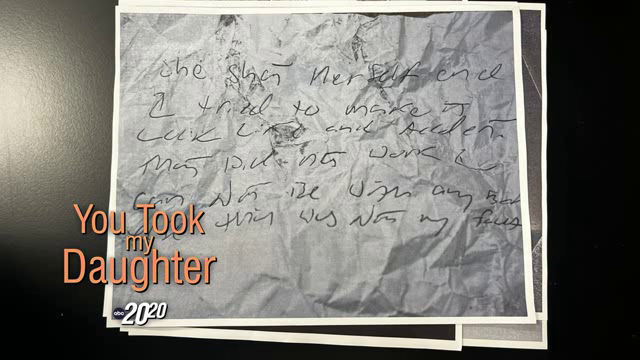 she shot Herself and
I tried to make it
Look Like and Accident.
That Did not work
can Not Be With any
this was Not my
You Took
my
Daughter
abc 20/20